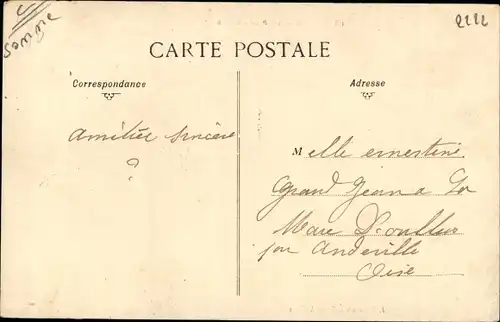 Somme
2222
CARTE POSTALE
Correspondance
Adresse
amitiée sincère
?
Melle ernestine
Grand Jean a La
Mare D'ouillier
par Andeville
Oise